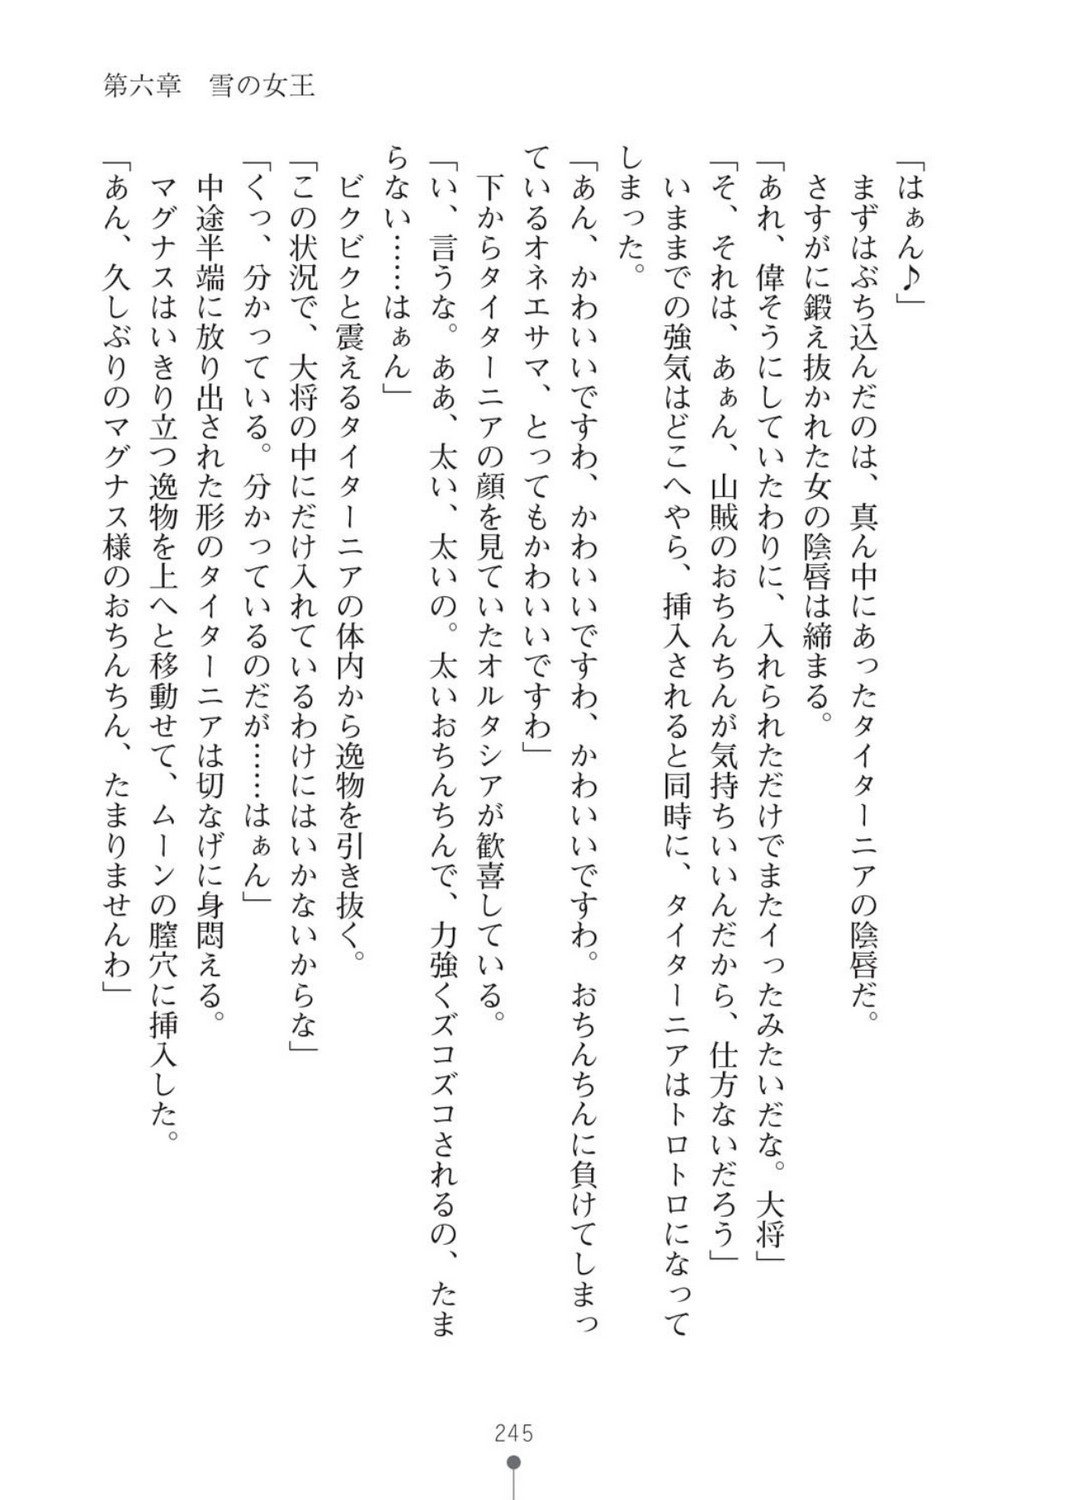 第六章　雪の女王
「はぁん♪」
まずはぶち込んだのは、真ん中にあったタイターニアの陰唇だ。
さすがに鍛え抜かれた女の陰唇は締まる。
「あれ、偉そうにしていたわりに、入れられただけでまたイったみたいだな。大将」
「そ、それは、あぁん、山賊のおちんちんが気持ちいいんだから、仕方ないだろう」
いままでの強気はどこへやら、挿入されると同時に、タイターニアはトロトロになって
しまった。
「あん、かわいいですわ、かわいいですわ、かわいいですわ。おちんちんに負けてしまっ
ているオネエサマ、とってもかわいいですわ」
下からタイターニアの顔を見ていたオルタシアが歓喜している。
「い、言うな。ああ、太い、太いの。太いおちんちんで、力強くズコズコされるの、たま
らない……はぁん」
ビクビクと震えるタイターニアの体内から逸物を引き抜く。
「この状況で、大将の中にだけ入れているわけにはいかないからな」
「くっ、分かっている。分かっているのだが……はぁん」
中途半端に放り出された形のタイターニアは切なげに身悶える。
マグナスはいきり立つ逸物を上へと移動せて、ムーンの膣穴に挿入した。
「あん、久しぶりのマグナス様のおちんちん、たまりませんわ」
245